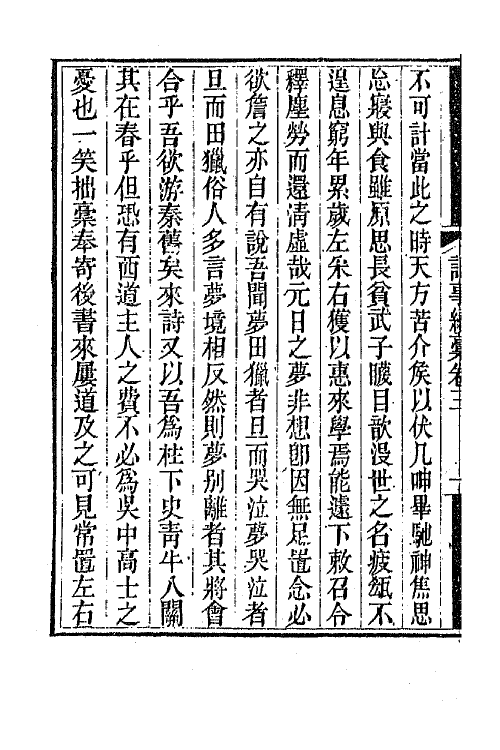 不可計當此之時天方苦介矦以伏几呻畢馳神焦思
忘寢與食雖原思長貧武子矇目歆沒世之名疲𤬪不
遑息窮年累歲左朱右獲以惠來學焉能遽下敕召令
釋塵勞而還淸虛哉元日之夢非想卽因無足置念必
欲詹之亦自有說吾聞夢田獵者旦而哭泣夢哭泣者
旦而田獵俗人多言夢境相反然則夢別離者其將會
合乎吾欲游秦舊矣來詩又以吾爲柱下史靑牛入關
其在春乎但恐有西道主人之費不必爲吳中高士之
憂也一笑拙稾奉寄後書來屢道及之可見常置左右
稾卷三